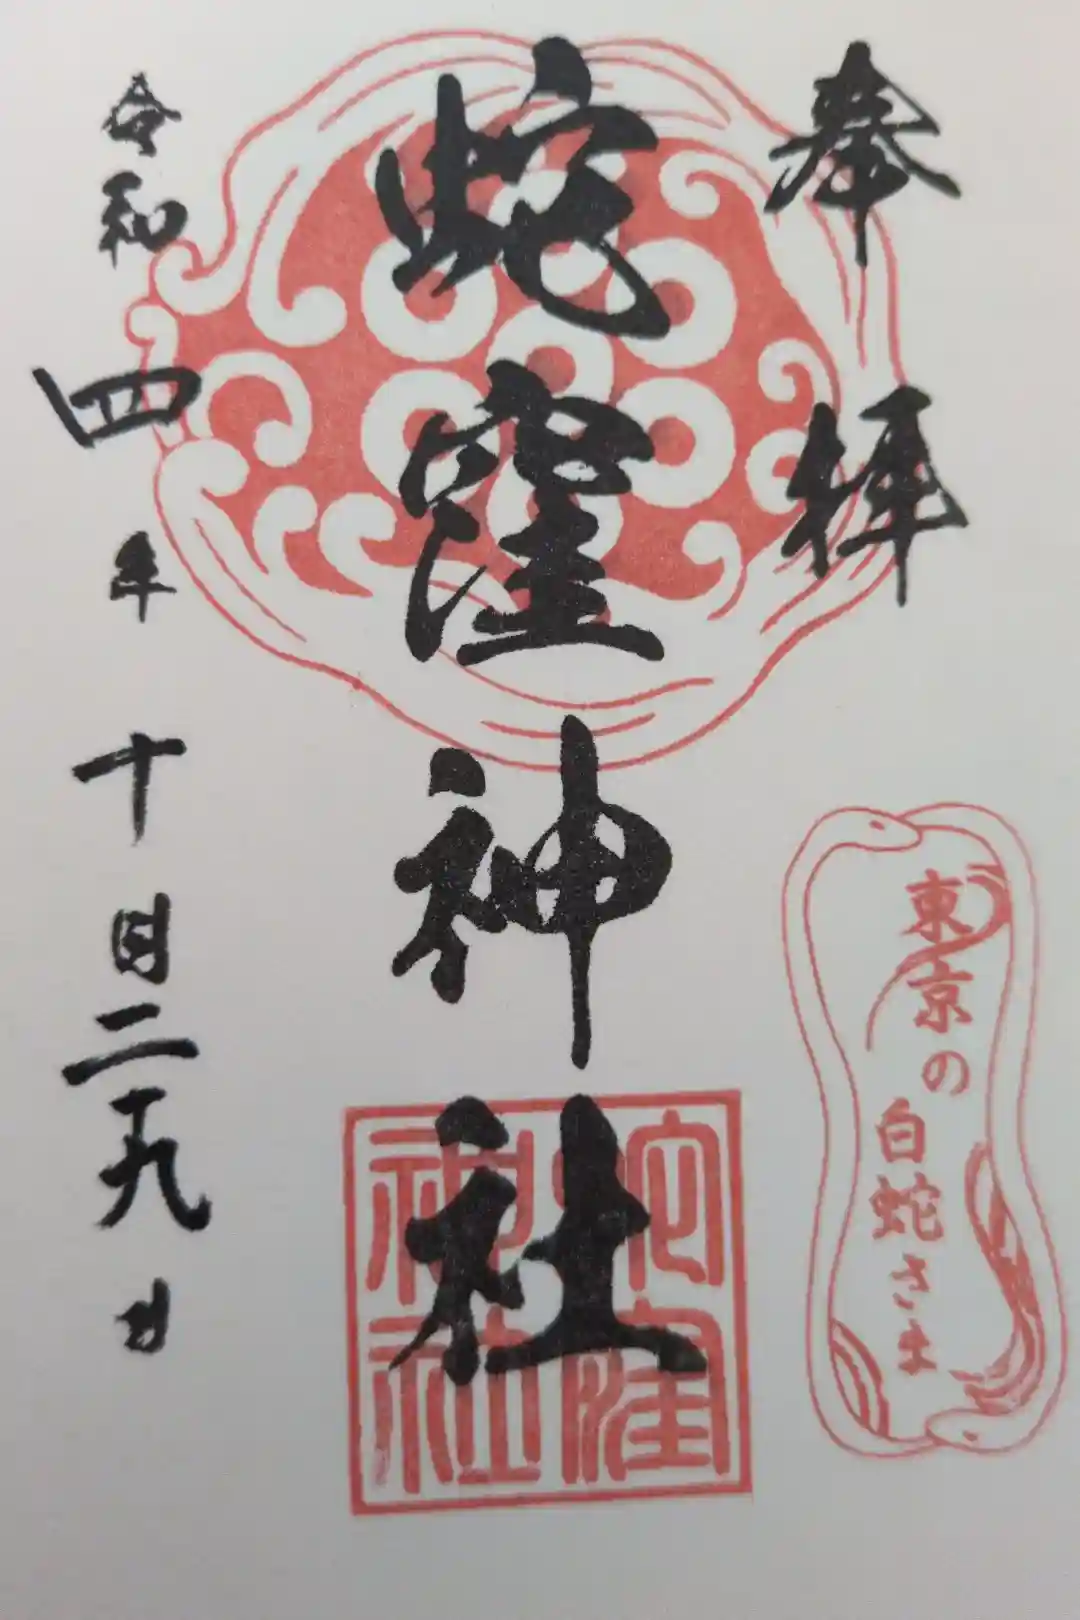 奉拝
蛇窪神社
令和四年十月二十九日
東京の
白蛇さま
蛇窪
神社